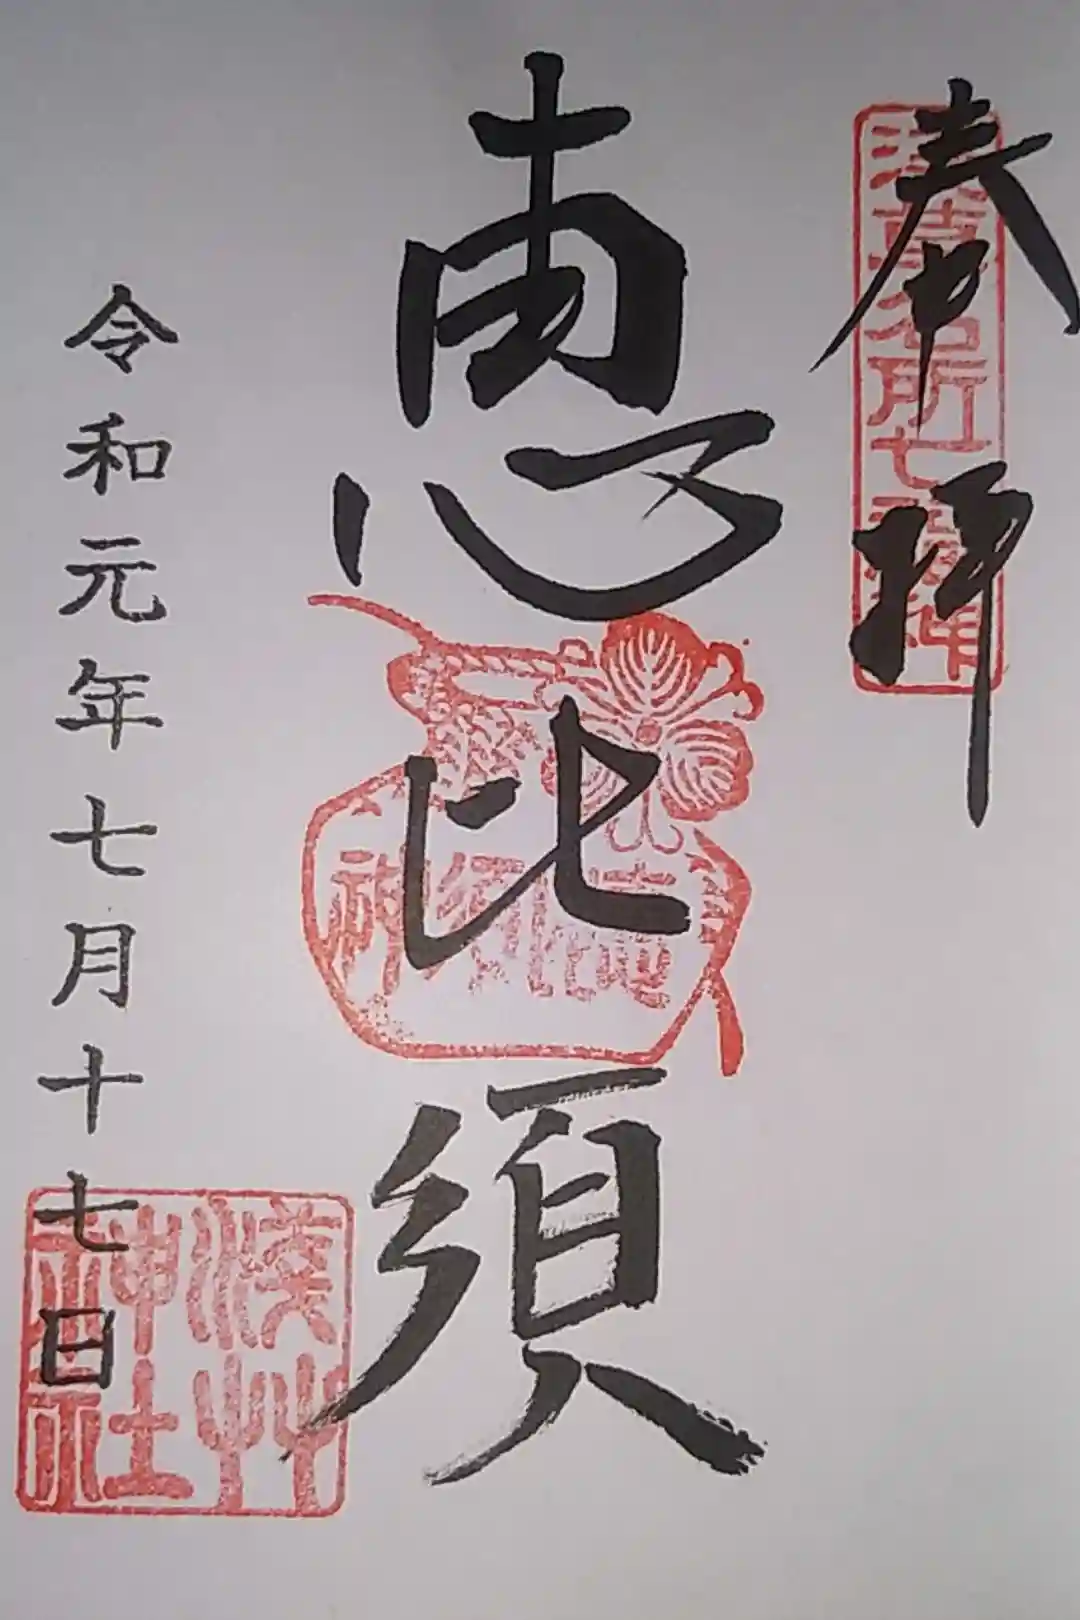 奉拝
浅草名所七福神
恵比須
恵比須神
令和元年七月十七日
浅草神社